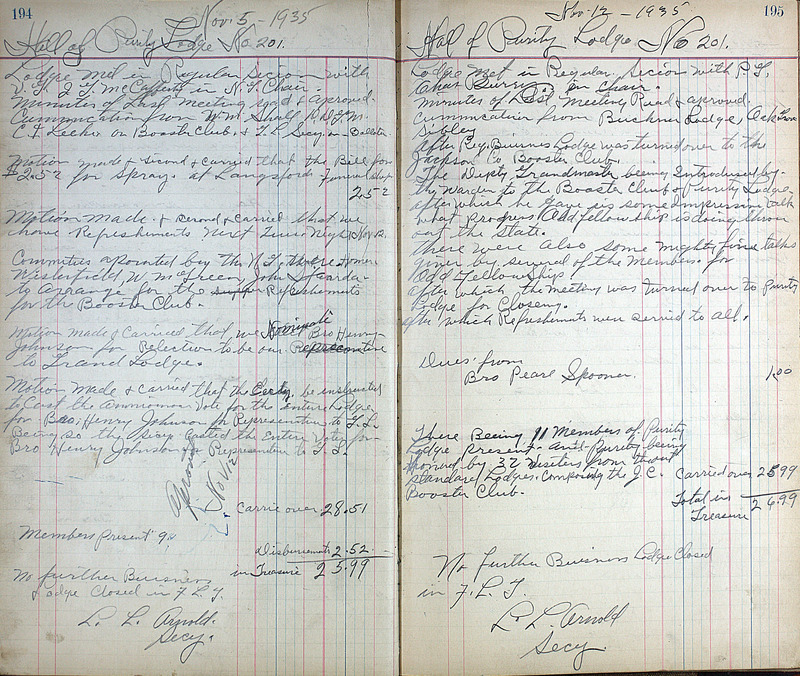 194
Nov. 5 - 1935
Hall of Purity Lodge No. 201.
Lodge Met in Regular Secion with
V. G. J. T. McCafferty in N. G. Chair.
Minutes of Last meeting read & aproved.
Cummucation from W.M. Small D.D.G.M.
on Booster Club. &
Motion made & Second & carried that the Bill for
$2.52 for Sprays at Langsford Funeral
2.52
Motion Made & second & carried that we
have Refreshments Next Tues Night Nov 12.
Committies apointed by the N.G. Homer
Westerfield W. McGreen, John
to Arrange for the supper Refreshments
for the Booster Club.
Motion made & Carried that we Nominate Bro Henry
Johnson for Relection to be our
to Grand Lodge.
Motion Made & Carried that the Secty. be instructed
to Cast the Vote for the entire Lodge
for Bro. Henry Johnson for Representive to G.L.
Being so the Secy Casted the Entire Vote for
Bro Henry Johnson for Representive to G.L.
Aproved
Nov 12
Carrie over 28.51
Members Present 9.
Disburcements 2.52
in Treasure 25.99
No further Buisness
Lodge Closed in F. L. T.
L. L. Arnold.
Secy.
195
Nov. 12 - 1935
Hall of Purity Lodge No 201.
Lodge Met in Regular Secion with P. G.
Chas in Chair.
Minutes of Last Meeting Read & aproved.
Cummucation from Buckner Lodge
Sibley
After Reg. Buisnes Lodge was turned over to the
Jackson Co. Booster Club.
The Deputy Grandmaster being Introdused by
the Warden to the Booster Club & Purity Lodge
after which he gave us some Impressive talk
what progress Oddfellowship is doing throu
out the State.
there were also some mighty fine talks
given by several of the Members for
Odd Fellowship.
after which the meeting was turned over to Purity
Lodge for Closeing.
after which Refreshments were served to all.
Dues from
Bro Pearl Spooner. 1.00
There Being 11 Members of Purity
Lodge present. And Purity being
honored by 32 Visiters from
standard Lodges. Composing the J.C.
Booster Club.
Carried over 25.99
Total in 26.99
Treasure
No further Buisness Lodge Closed
in F. L. T.
L. L. Arnold
Secy.